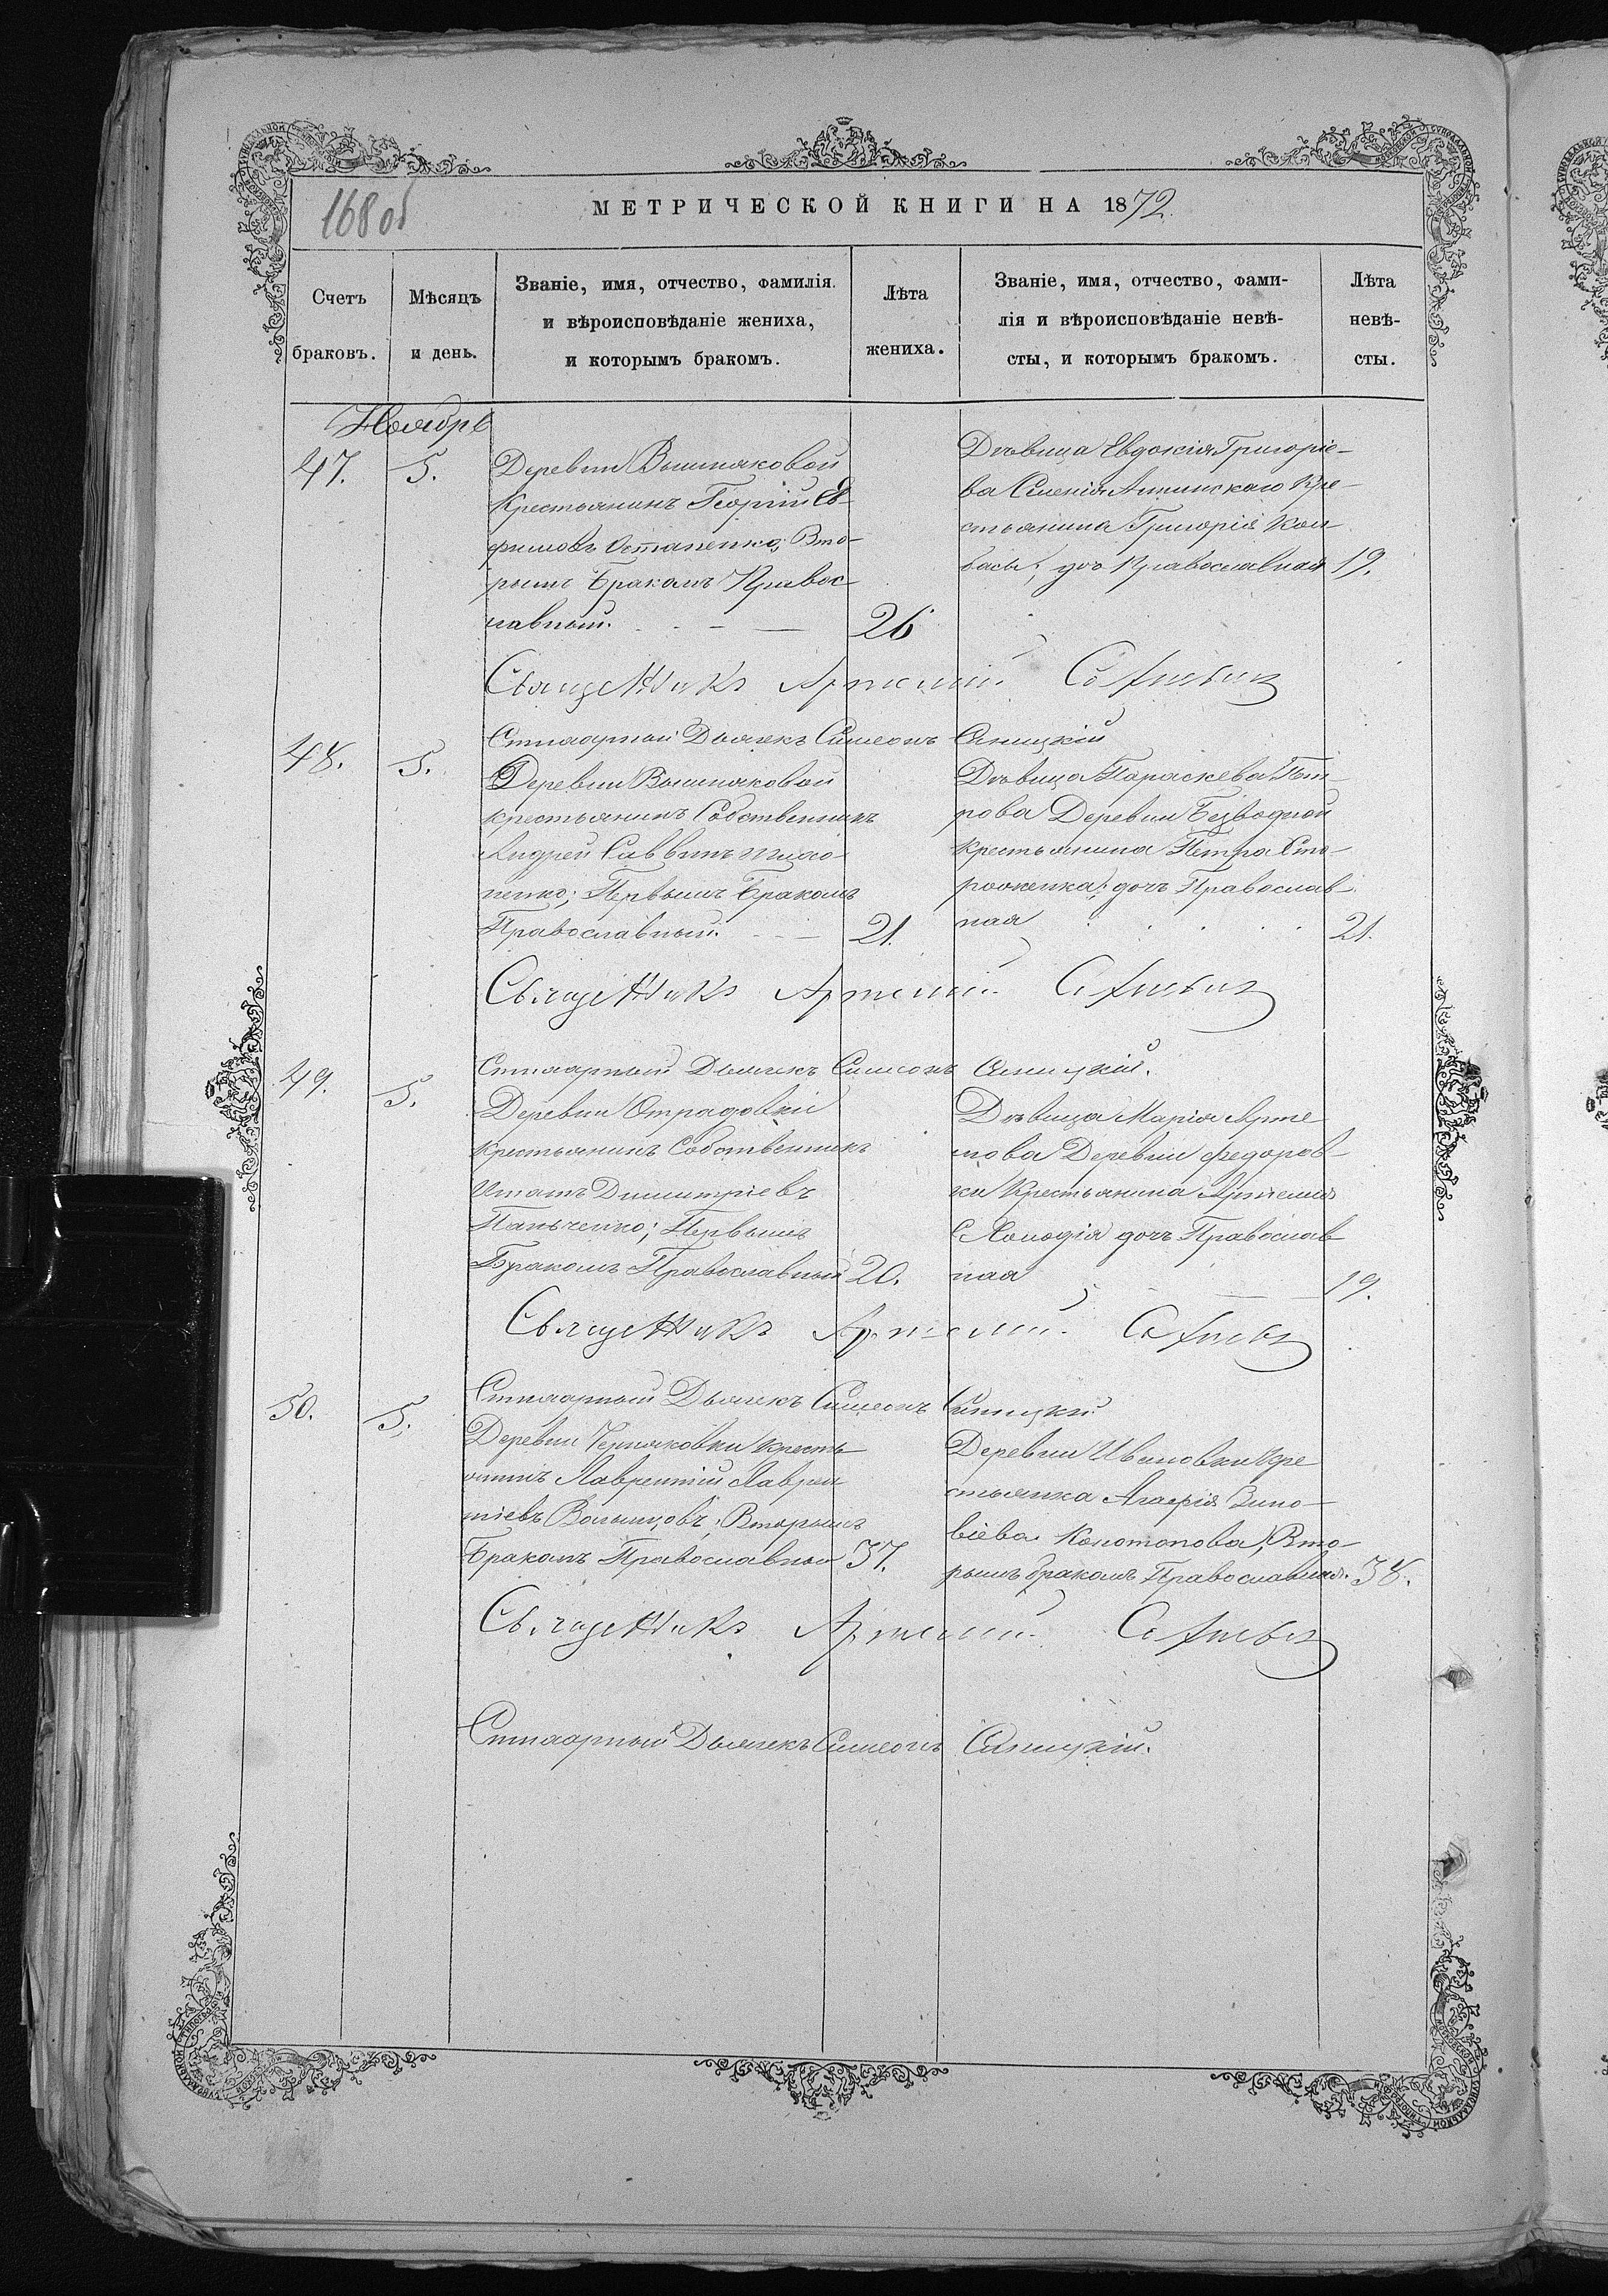 168 об
МЕТРИЧЕСКОЙ КНИГИ НА 1872.
Счетъ браковъ.
Мѣсяцъ и день.
Званіе, имя, отчество, фамилія
и вѣроисповѣданіе жениха,
и которымъ бракомъ.
Лѣта жениха.
Званіе, имя, отчество, фами-
лія и вѣроисповѣданіе невѣ-
сты, и которымъ бракомъ.
Лѣта невѣ-
сты.
Ноябрь
47. 5.
Деревни Вишняковой
Крестьянинъ Георгій Ев-
фимовъ Остапенко; Вто-
рымъ Бракомъ Правос
лавный. 26
Дѣвица Евдокія Григоріе-
ва Селенія Кре-
стьянина Григорія Кол
басы; дочь Православная 19.
Священникъ Артемій
Стихарный Дьячекъ Симеонъ Синицкій
48. 5.
Деревни Вишняковой
крестьянинъ Собственникъ
Андрей Саввинъ
пенко; Первымъ Бракомъ
Православный. 21.
Дѣвица Параскева Пет
рова Деревни Безводной
Крестьянина Петра Сто-
роженка; дочь Православ
ная 21.
Священникъ Артемій
Стихарный Дьячекъ Симеонъ Синицкій.
49. 5.
Деревни Отрадовки
Крестьянинъ Собственникъ
Димитріевъ
Панченко; Первымъ
Бракомъ Православный 20.
Дѣвица Марія Арте
мова Деревни Федоров-
ки Крестьянина Артемия
дочь Православ
ная 19.
Священникъ Артемій
Стихарный Дьячекъ Симеонъ Синицкій
50. 5.
Деревни Черняковки кресть
янинъ Лаврентій Лаврен
тіевъ; Вторымъ
Бракомъ Православный 37.
Деревни Ивановки Кре
стьянка Агафія Зино-
віева Конотопова, Вто-
рымъ бракомъ Православная. 38.
Священникъ Артемій
Стихарный Дьячекъ Симеонъ Синицкій.